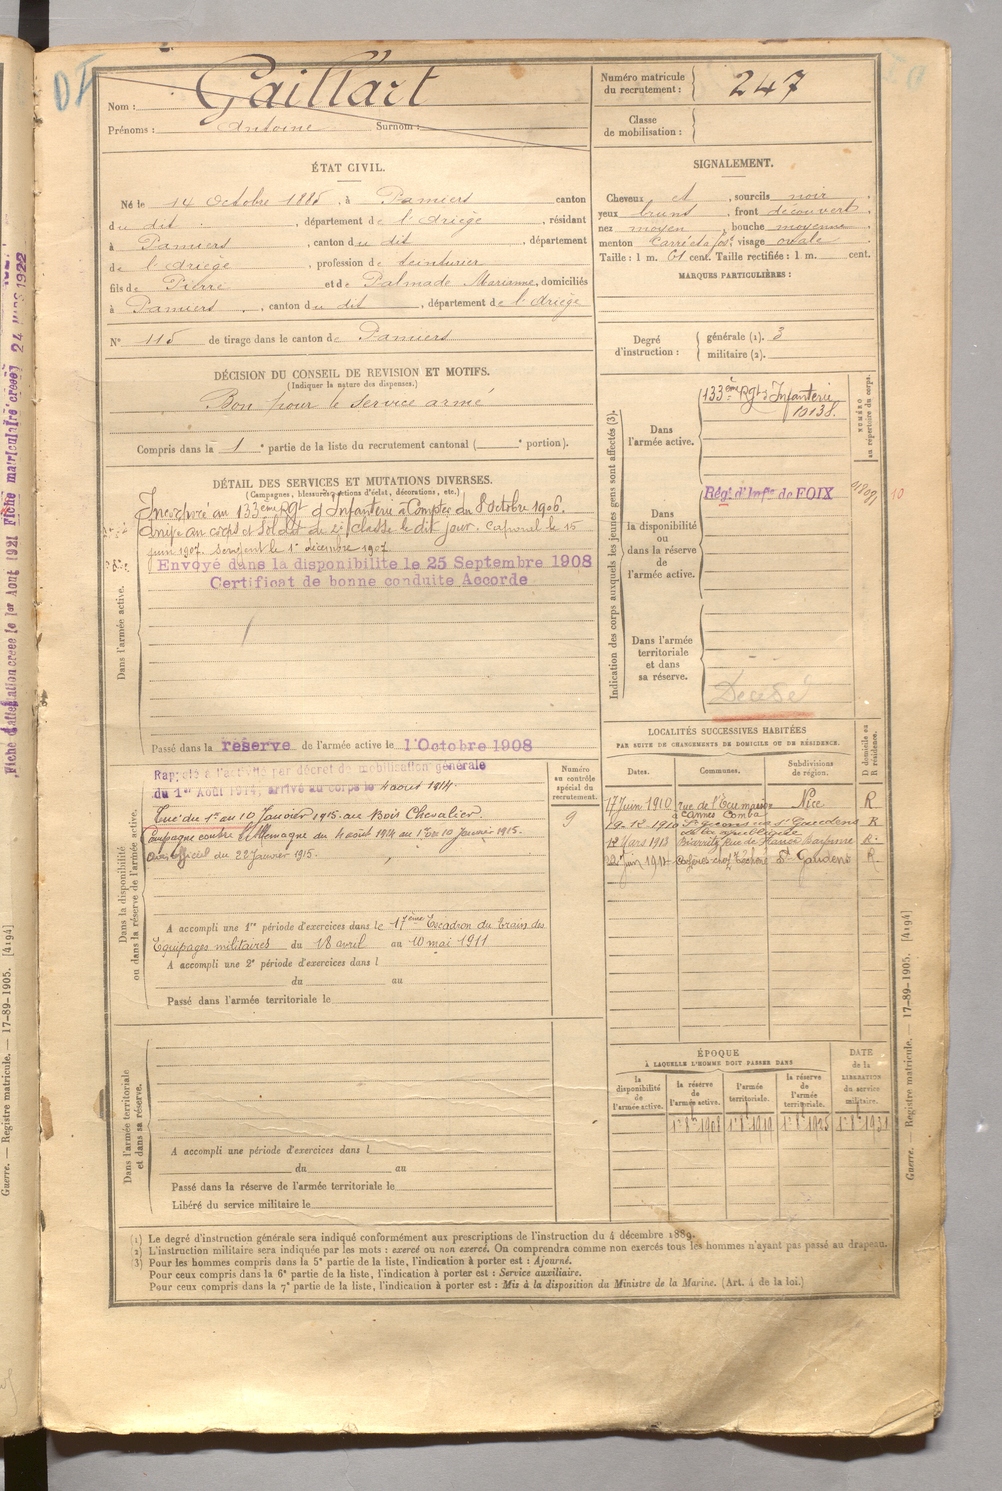 Nom : Gaillart
Prénoms : Antoine Surnom :
Numéro matricule du recrutement : 247
Classe de mobilisation :
ÉTAT CIVIL.
Né le 14 Octobre 1885, à Pamiers canton
du dit, département de l'Ariège, résidant
à Pamiers, canton du dit, département
de l'Ariège, profession de teinturier
fils de Pierre et de Palmade Marianne, domiciliés
à Pamiers, canton du dit, département de l'Ariège
N° 115 de tirage dans le canton de Pamiers
SIGNALEMENT.
Cheveux et, sourcils noir
yeux bruns, front découvert
nez moyen, bouche moyenne
menton, visage ovale
Taille : 1 m. 61 cent. Taille rectifiée : 1 m. cent.
MARQUES PARTICULIÈRES :
Degré d'instruction : générale (1). 3
militaire (2).
DÉCISION DU CONSEIL DE REVISION ET MOTIFS.
(Indiquer la nature des dispenses.)
Bon pour le service armé
Compris dans la 1e partie de la liste du recrutement cantonal ( e portion).
DÉTAIL DES SERVICES ET MUTATIONS DIVERSES.
(Campagnes, blessures, actions d'éclat, décorations, etc.)
Dans l'armée active.
Incorporé au 133ème Rgt d'Infanterie à Compter du 8 Octobre 1906.
Arrivé au corps et Soldat de 2e classe le dit jour. Caporal le 15
juin 1907. Sergent le 1er décembre 1907
Envoyé dans la disponibilité le 25 Septembre 1908
Certificat de bonne conduite Accorde
Passé dans la réserve de l'armée active le 1 Octobre 1908
Dans la disponibilité ou dans la réserve de l'armée active.
Rappelé à l'activité par décret de mobilisation générale
du 1er Août 1914, arrivé au corps le 4 août 1914
Tué du 1er au 10 Janvier 1915 au Bois Chevalier.
Campagne contre l'Allemagne du 4 août 1914 au 1er 10 Janvier 1915.
Avis officiel du 22 Janvier 1915.
A accompli une 1re période d'exercices dans le 17ème Escadron du Train des
Equipages militaires du 18 avril au 10 mai 1911
A accompli une 2e période d'exercices dans l
du au
Passé dans l'armée territoriale le
Numéro au contrôle spécial du recrutement.
9
Dans l'armée territoriale et dans sa réserve.
A accompli une période d'exercices dans l
du au
Passé dans la réserve de l'armée territoriale le
Libéré du service militaire le
Indication des corps auxquels les jeunes gens sont affectés (3).
NUMÉRO au répertoire du corps.
Dans l'armée active.
133ème Rgt d'Infanterie
10138.
Dans la disponibilité ou dans la réserve de l'armée active.
Régt d'Infie de FOIX
10
Dans l'armée territoriale et dans sa réserve.
Décédé
LOCALITÉS SUCCESSIVES HABITÉES
PAR SUITE DE CHANGEMENTS DE DOMICILE OU DE RÉSIDENCE.
D domicile ou R résidence.
Dates. Communes. Subdivisions de région.
17 Juin 1910 rue de l'Ecumaison Nice R
19-12-1910 St Gaudens R
de la république
12 Mars 1913 Biarritz Bayonne R.
St Gaudens R
ÉPOQUE
À LAQUELLE L'HOMME DOIT PASSER DANS
la disponibilité de l'armée active.
la réserve de l'armée active.
l'armée territoriale.
la réserve de l'armée territoriale.
DATE de la LIBÉRATION du service militaire.
(1) Le degré d'instruction générale sera indiqué conformément aux prescriptions de l'instruction du 4 décembre 1889.
(2) L'instruction militaire sera indiquée par les mots : exercé ou non exercé. On comprendra comme non exercés tous les hommes n'ayant pas passé au drapeau.
(3) Pour les hommes compris dans la 5e partie de la liste, l'indication à porter est : Ajourné.
Pour ceux compris dans la 6e partie de la liste, l'indication à porter est : Service auxiliaire.
Pour ceux compris dans la 7e partie de la liste, l'indication à porter est : Mis à la disposition du Ministre de la Marine. (Art. 4 de la loi.)
Guerre. — Registre matricule. — 17-89-1905. [4194]
Guerre. — Registre matricule. — 17-89-1905. [4194]